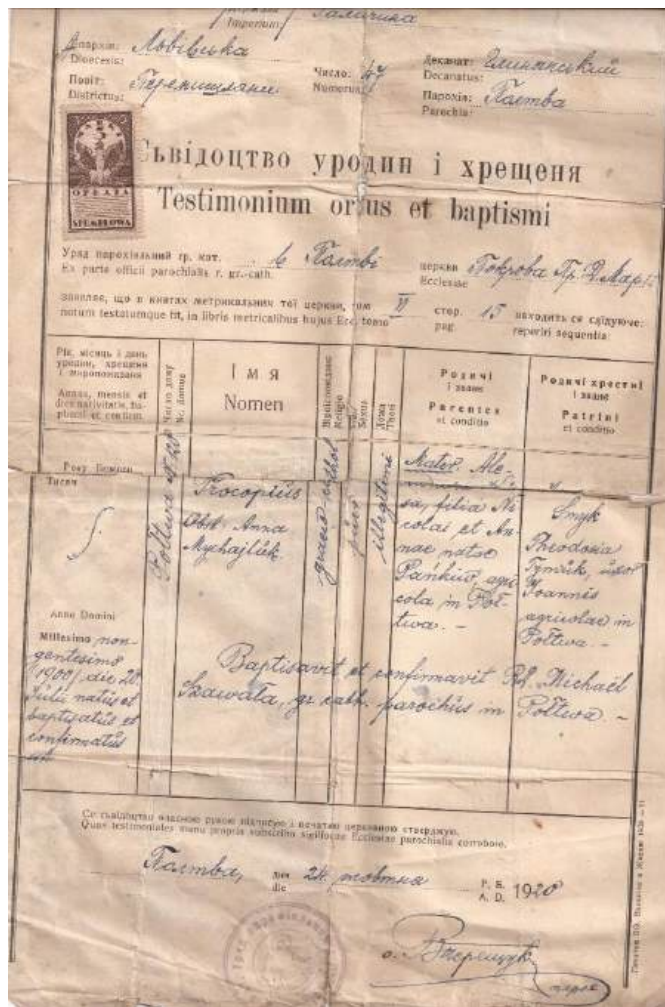 Imperium: Галичина
Епархія: Львівська
Dioecesis:
Деканат: Глинянський
Decanatus:
Повіт: Перемишляни
Districtus:
Число: 47
Numerus:
Парохія: Полтва
Parochia:
ОПЛАТА
СТЕМПЛОВА
Сьвідоцтво уродин і хрещеня
Testimonium ortus et baptismi
Уряд парохіяльний гр. кат. в Полтві церкви Покрова Пр. Д. Марії
Ex parte officii parochialis r. gr.-cath. Ecclesiae
заявляє, що в книгах метрикальних тої церкви, том VI стор. 15 находить ся слїдуюче:
notum testatumque fit, in libris metricalibus hujus Ecc. tomo pag. reperiri sequentia:
Рік, місяць і день уродин, хрещеня і миропомазаня
Annus, mensis et dies nativitatis, baptismi et confirm.
Число дому
Nr. domus
Імя
Nomen
Віроісповіданє
Religio
Sexus
Ложа
Thori
Родичі
і званє
Parentes
et conditio
Родичі хрестні
і званє
Patrini
et conditio
Року Божого
Тисяч
Anno Domini
Millesimo nongentesimo
1900 die 20
Julii natus et
baptisatus et
confirmatus
Połtwa N 120
Procopius
Obst: Anna
Mychajluk.
graeco cathol
puer
illegitimi
Mater. Ale-
sa, filia Ni-
colai et An-
nae natae
Pańkiw, agri-
cola in Poł-
twa. -
Smyk
Theodosia
Tymuk, uxor
Joannis
agricolae in
Połtwa. -
Baptisavit et confirmavit Michaël
Szawała, gr. cath. parochus in Połtwa. -
Се сьвідоцтво власною рукою підписую і печатию церковною стверджую.
Quas testimoniales manu propria subscribo sigilloque Ecclesiae parochialis corroboro.
Полтва, дня 24. жовтня Р. Б. 1920
die A. D.
о.
парох